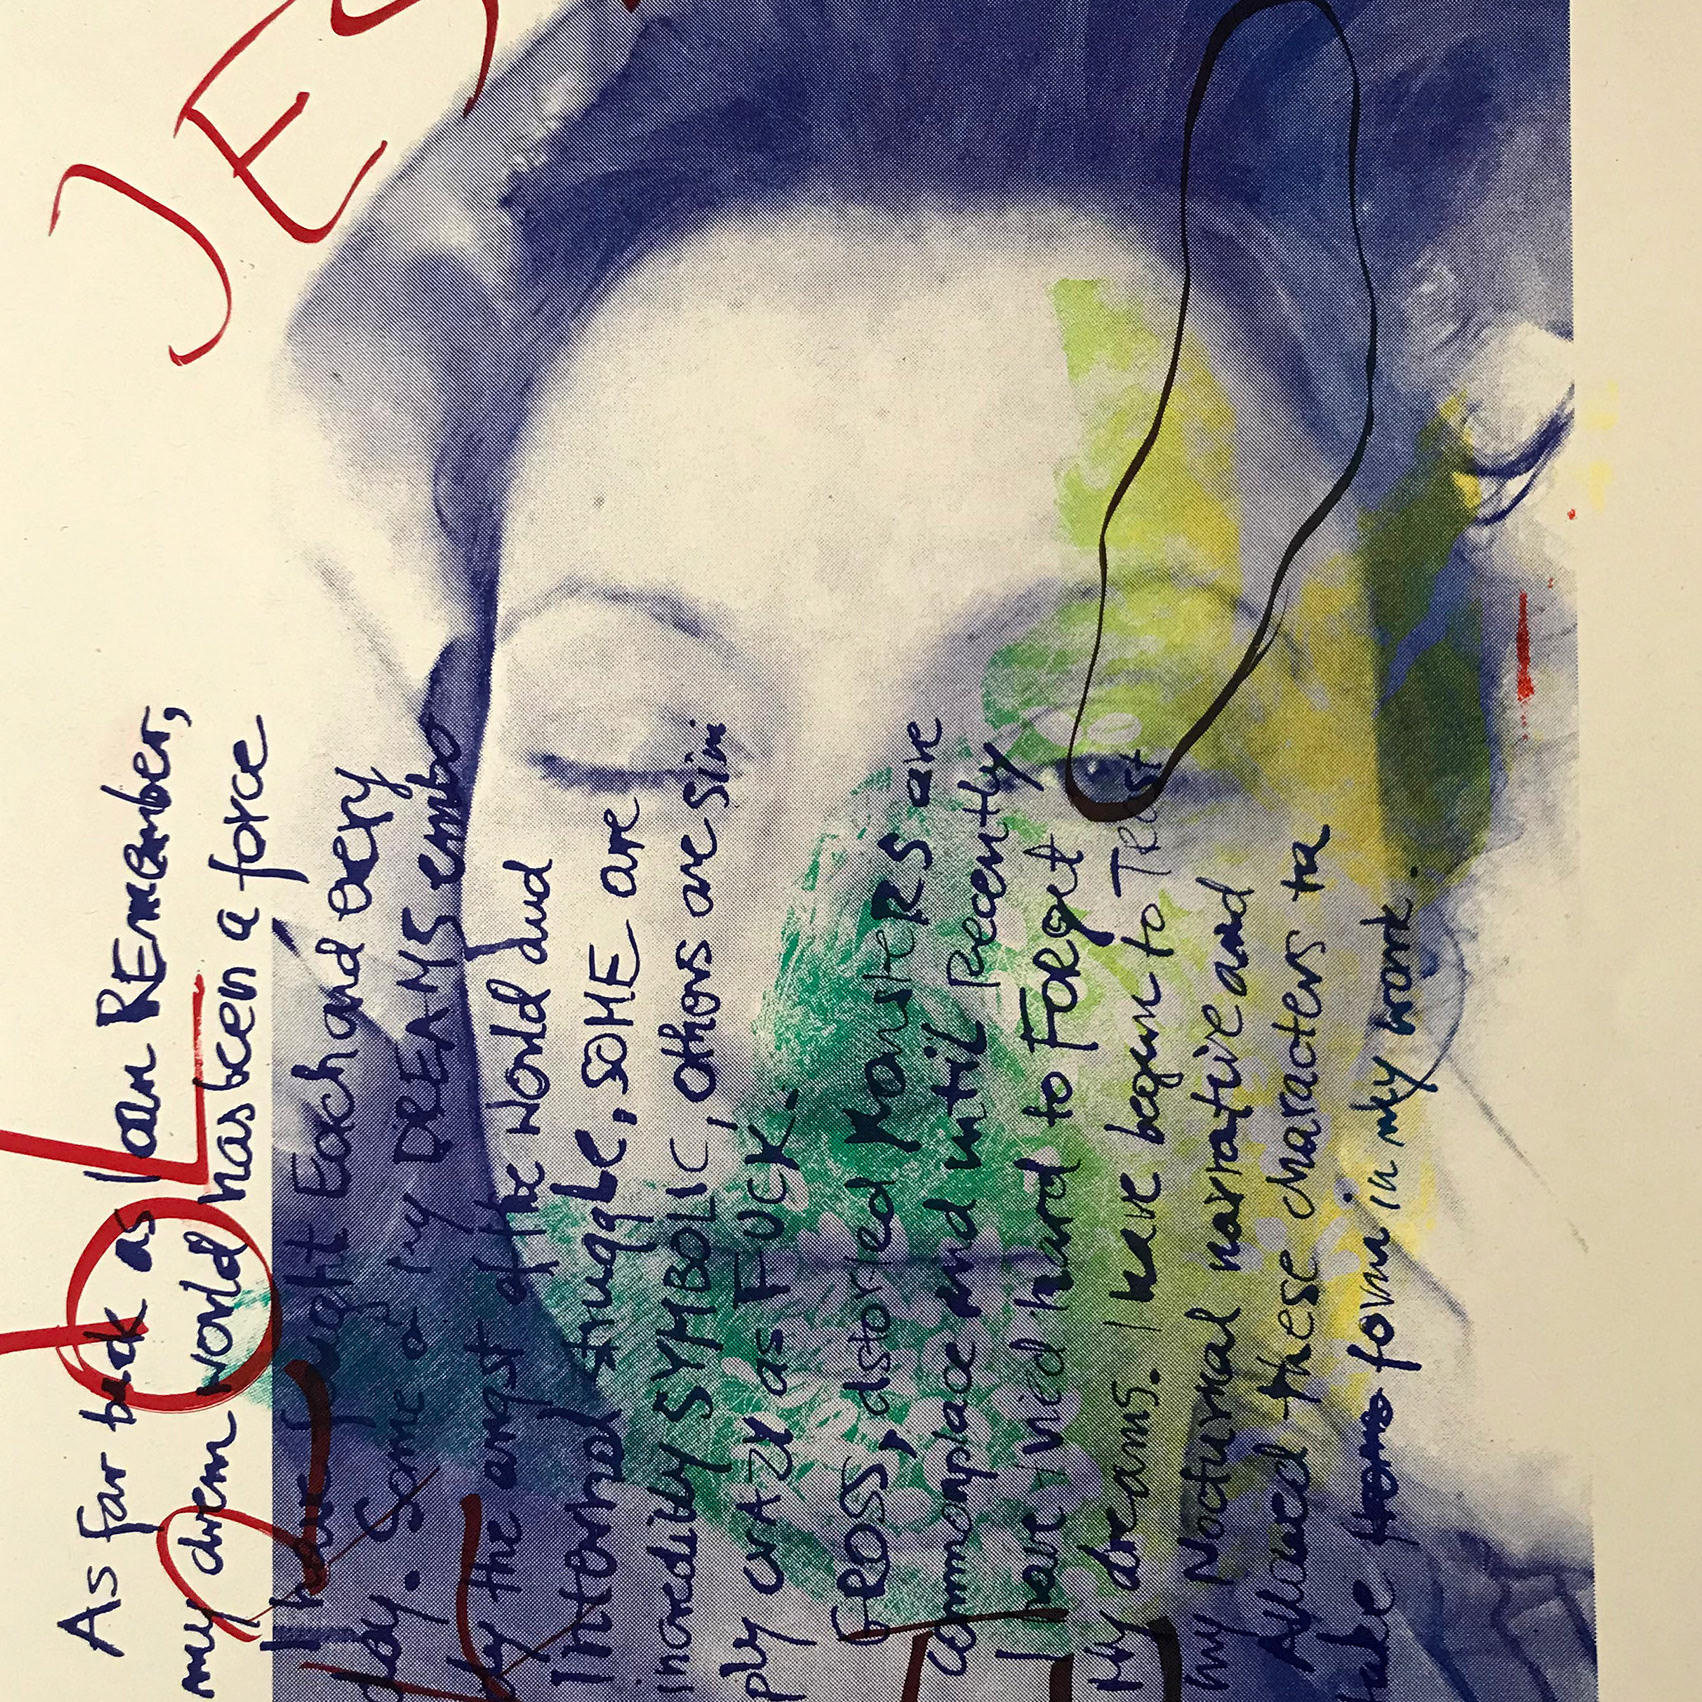 JES
As far back as I can REmember,
my drem world has been a force
I have fought Each and every
day. Some of my DREAMS embo
dy the angst of the world and
Internal struggle, SOME are
incredibly SYMBOLIC, others are sim
ply crazy as FUCK.
GROSS, distorted MONSTERS are
commonplace and until recently
I have tried hard to FORget
My dreams. I have begun to Trust
my Nocturnal narrative and
Allowed these characters to
take form in my work.